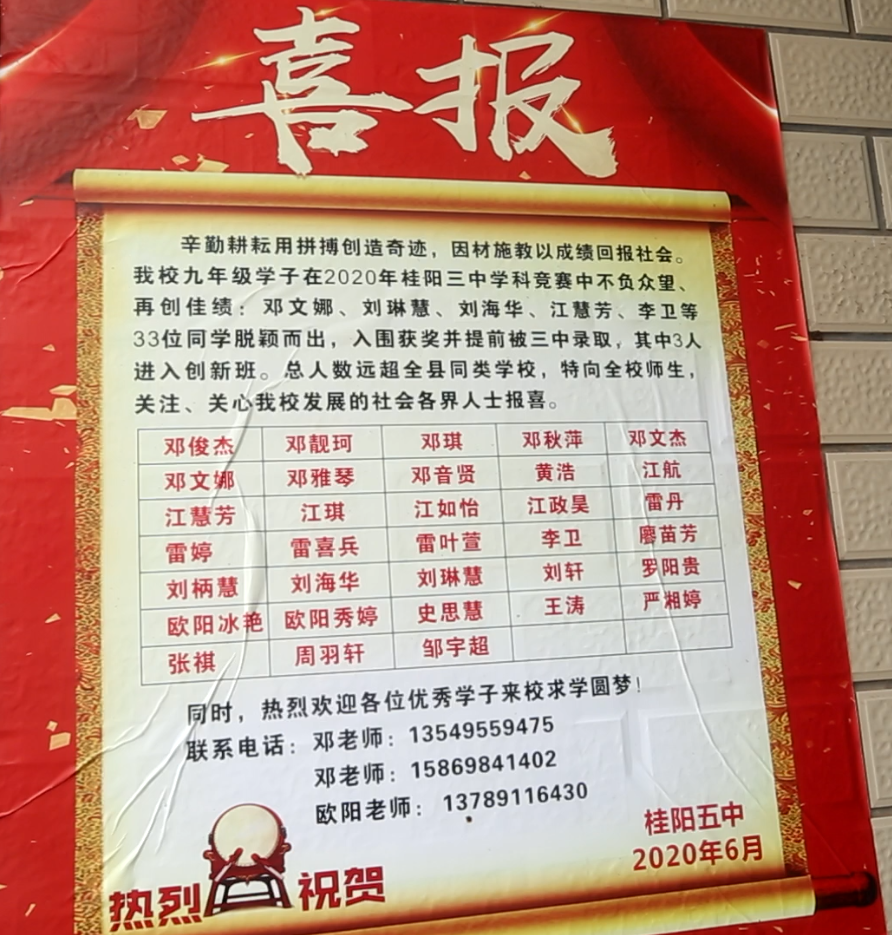 喜报
辛勤耕耘用拼搏创造奇迹，因材施教以成绩回报社会。
我校九年级学子在2020年桂阳三中学科竞赛中不负众望、
再创佳绩：邓文娜、刘琳慧、刘海华、江慧芳、李卫等
33位同学脱颖而出，入围获奖并提前被三中录取，其中3人
进入创新班。总人数远超全县同类学校，特向全校师生，
关注、关心我校发展的社会各界人士报喜。
邓俊杰 邓靓珂 邓琪 邓秋萍 邓文杰
邓文娜 邓雅琴 邓音贤 黄浩 江航
江慧芳 江琪 江如怡 江政昊 雷丹
雷婷 雷喜兵 雷叶萱 李卫 廖苗芳
刘柄慧 刘海华 刘琳慧 刘轩 罗阳贵
欧阳冰艳 欧阳秀婷 史思慧 王涛 严湘婷
张祺 周羽轩 邹宇超
同时，热烈欢迎各位优秀学子来校求学圆梦！
联系电话：邓老师：13549559475
邓老师：15869841402
欧阳老师：13789116430
桂阳五中
2020年6月
热烈祝贺